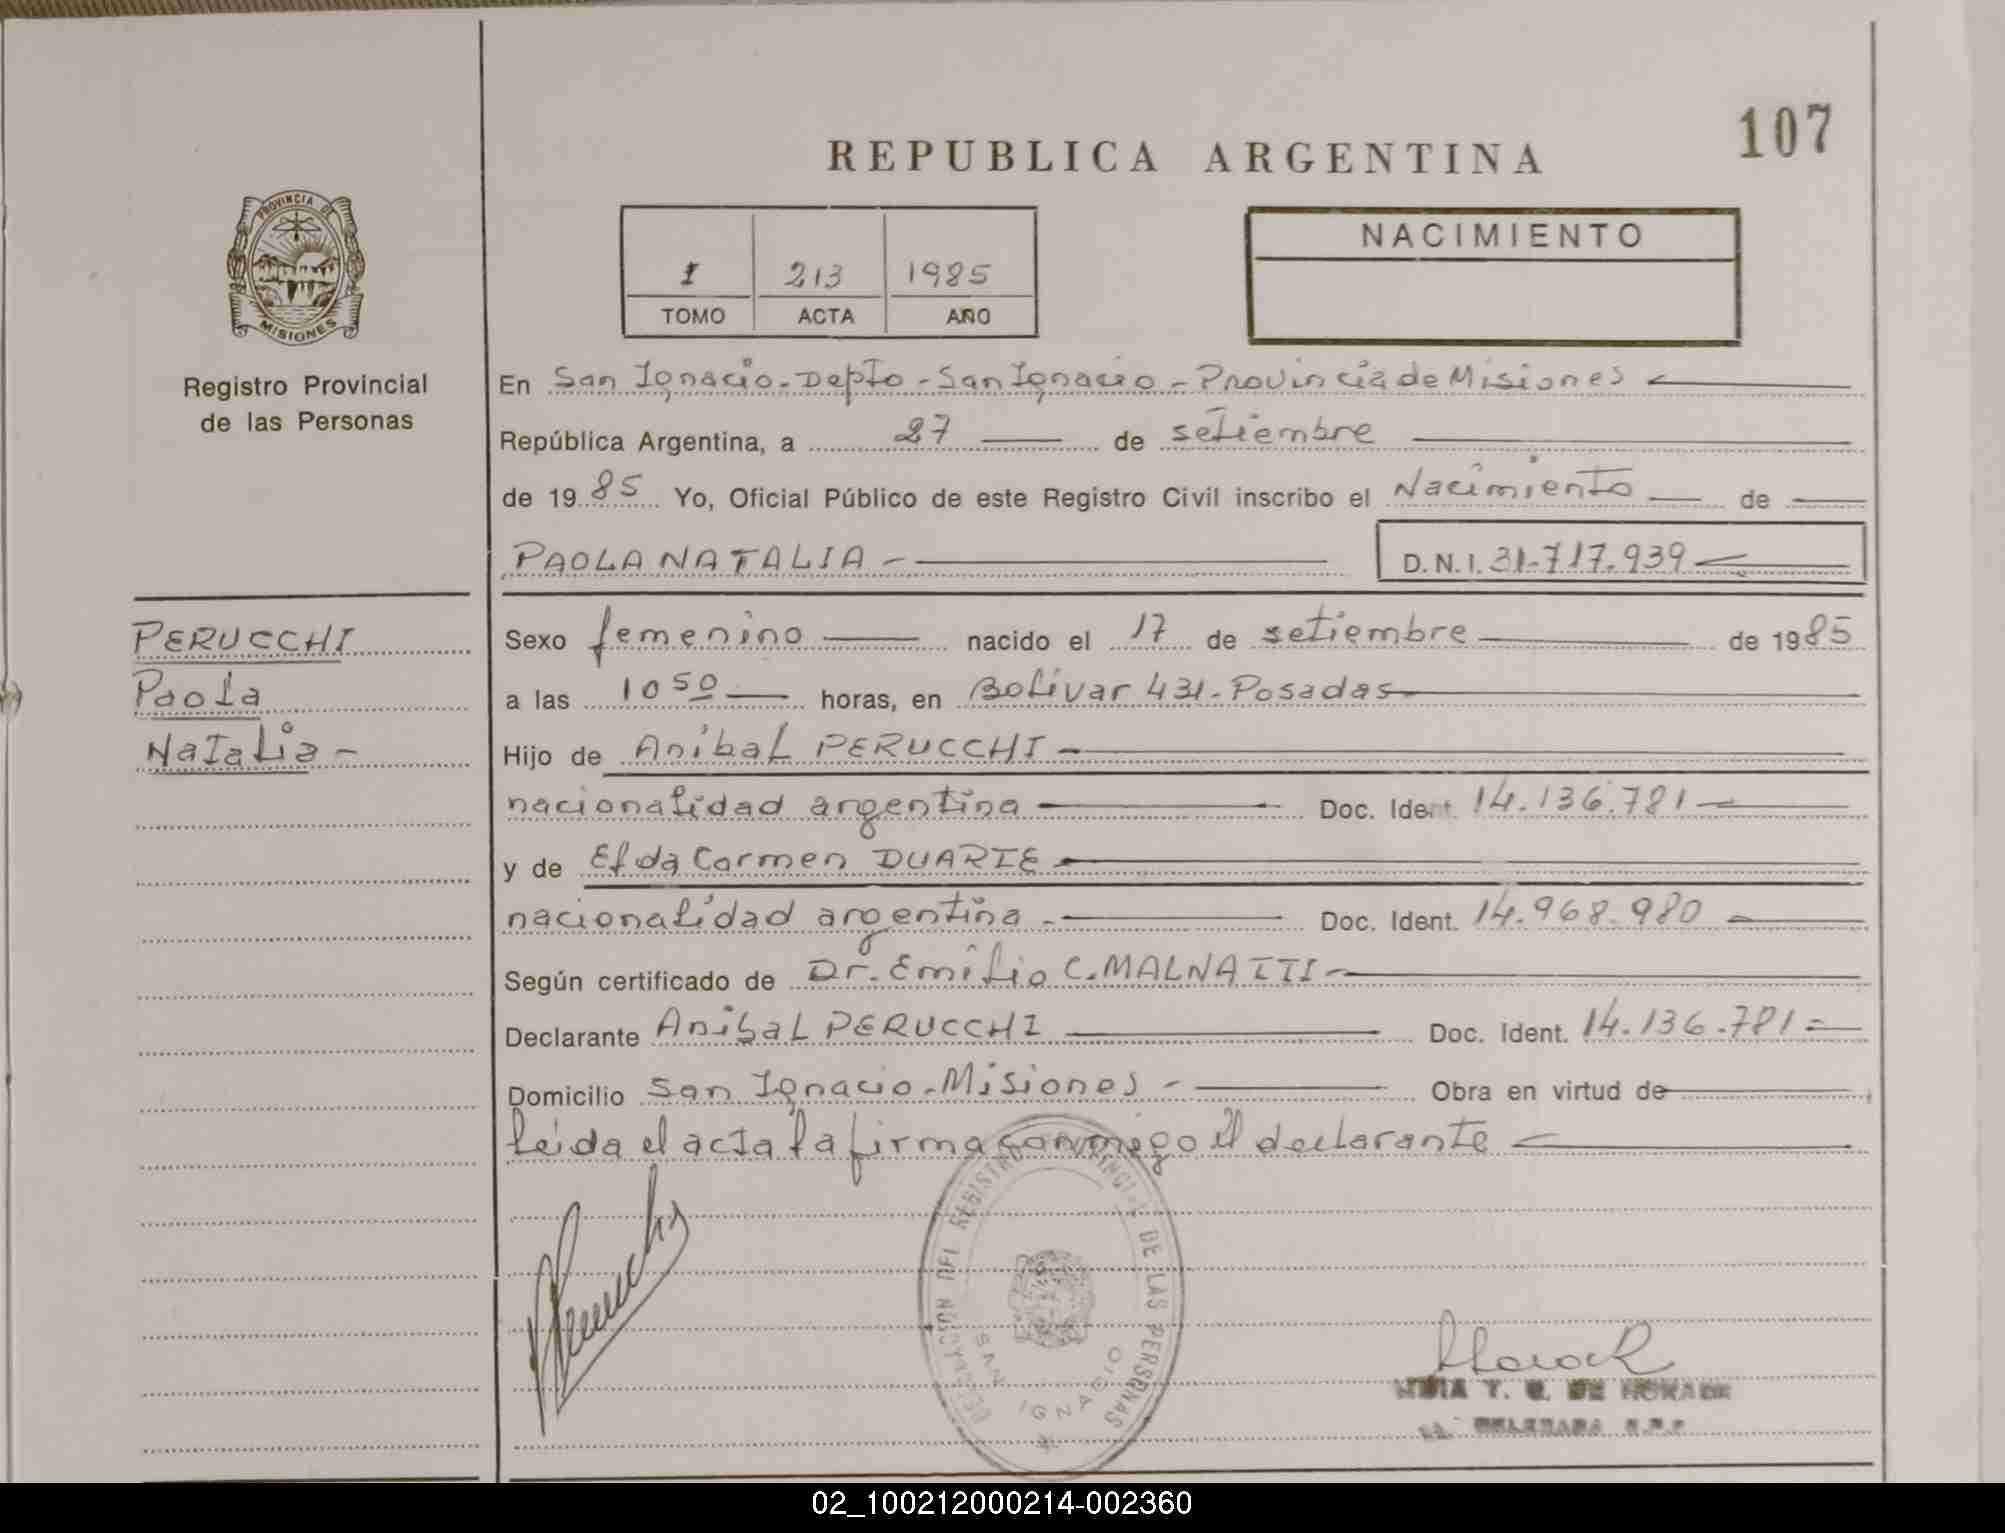 107
REPUBLICA ARGENTINA
PROVINCIA DE
MISIONES
Registro Provincial
de las Personas
1 213 1985
TOMO ACTA AÑO
NACIMIENTO
En San Ignacio - Depto - San Ignacio - Provincia de Misiones
República Argentina, a 27 de setiembre
de 1985 Yo, Oficial Público de este Registro Civil inscribo el Nacimiento de
PAOLA NATALIA - D.N.I. 31.717.939
PERUCCHI
Paola
Natalia -
Sexo femenino nacido el 17 de setiembre de 1985
a las 10 50 horas, en Bolívar 431 - Posadas
Hijo de Anibal PERUCCHI
nacionalidad argentina Doc. Ident. 14.136.781
y de Elida Carmen DUARTE
nacionalidad argentina - Doc. Ident. 14.968.980
Según certificado de Dr. Emilio C. MALNATTI
Declarante Anibal PERUCCHI Doc. Ident. 14.136.781
Domicilio San Ignacio - Misiones - Obra en virtud de
leida el acta la firma conmigo el declarante
DELEGACION DEL REGISTRO PROVINCIAL DE LAS PERSONAS
SAN IGNACIO
T. DE
DELEGADA
02_100212000214-002360